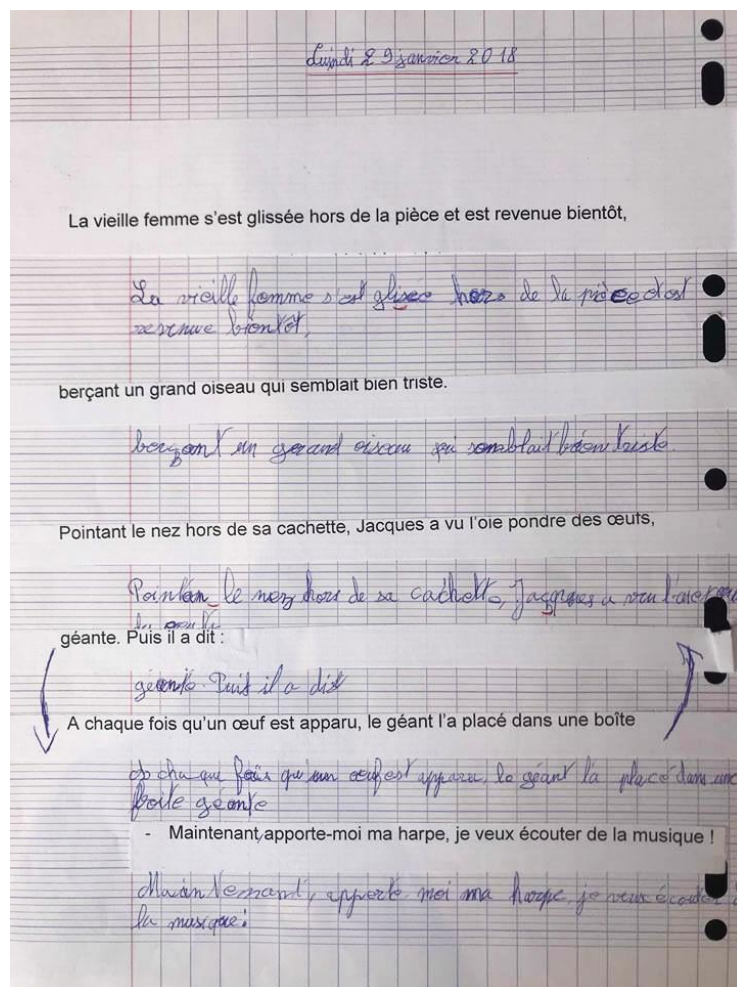 Lundi 29 janvier 2018
La vieille femme s'est glissée hors de la pièce et est revenue bientôt,
La vieille femme s'est glisee hors de la pièce et est
revenue bientôt,
berçant un grand oiseau qui semblait bien triste.
berçant un gerand oiseau qui semblait bien triste.
Pointant le nez hors de sa cachette, Jacques a vu l'oie pondre des œufs,
Pointan le nez hors de sa cachette, Jacques a vu l'oie
géante. Puis il a dit :
géante. Puis il a dit
A chaque fois qu'un œuf est apparu, le géant l'a placé dans une boîte
a chaque fois qu'un œuf est apparu, le géant l'a placé dans une
boîte géante
- Maintenant, apporte-moi ma harpe, je veux écouter de la musique !
apporte moi ma harpe, je veux écouter
la musique!